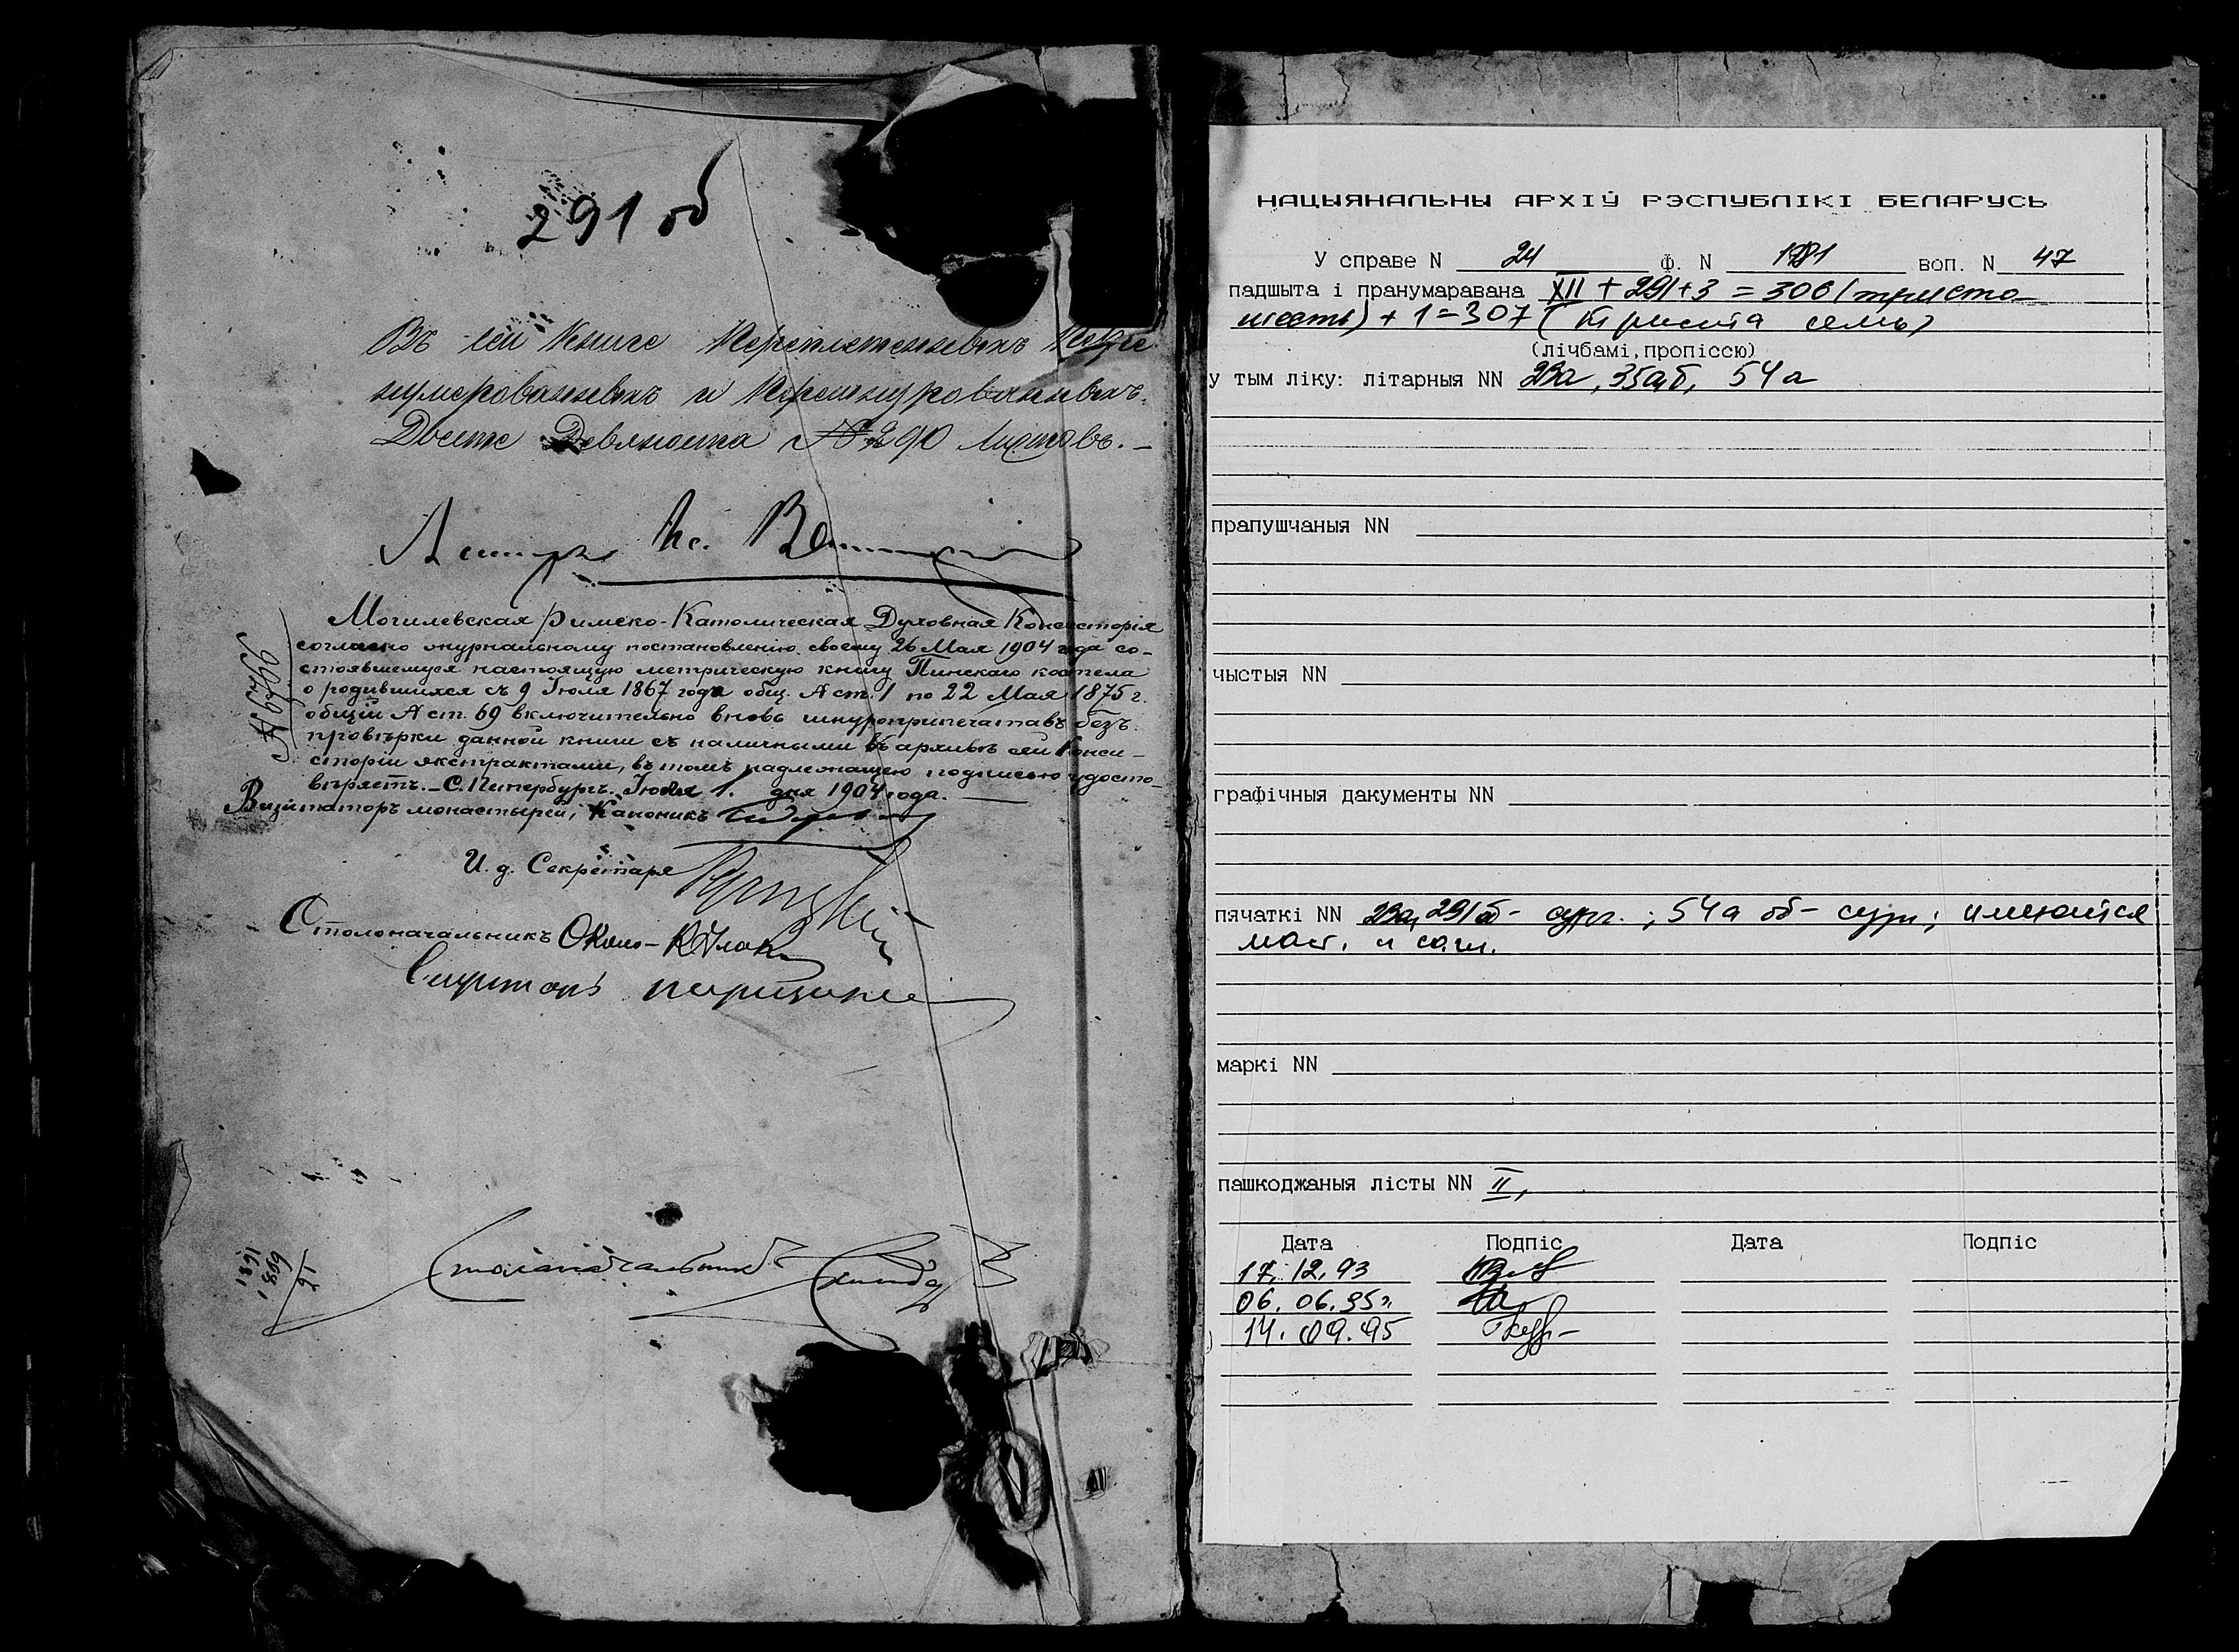 291 об
Въ сей Книге Переплетенныхъ Пере
нумерованныхъ и Перешнурованныхъ
Двести Девяноста № 290 Листовъ. —
Могилевская Римско-Католическая Духовная Консисторія
согласно журнальному постановленію своему 26 Мая 1904 года со-
стоявшемуся настоящую метрическую книгу Пинскаго костела
о родившихся съ 9 Іюля 1867 года общ. Аст. 1 по 22 Мая 1875 г.
общій Аст. 69 включительно вновь шнуроприпечатавъ безъ
провѣрки данной книги съ наличными въ архивѣ сей Конси-
сторіи экстрактами, въ томъ надлежащею подписью удосто-
вѣряетъ. — С. Петербургъ. Іюля 1. дня 1904 года. —
Визитаторъ монастырей, Каноникъ
И. д. Секретаря
Столоначальникъ
Столоначальникъ
1891
1809
91
НАЦЫЯНАЛЬНЫ АРХІЎ РЭСПУБЛІКІ БЕЛАРУСЬ
У справе N 24 Ф. N 1781 воп. N 47
падшыта і пранумаравана XII + 291+3 = 306 (тристо
шесть) + 1 = 307 (триста семь)
(лічбамі, пропіссю)
у тым ліку: літарныя NN 23а, 35а,б, 54а
прапушчаныя NN
чыстыя NN
графічныя дакументы NN
пячаткі NN 23а, 291об - сург. ; 54а об - сург ; имеются
маст. и саж.
маркі NN
пашкоджаныя лісты NN II,
Дата Подпіс Дата Подпіс
17. 12. 93
06. 06. 95г.
14. 09. 95